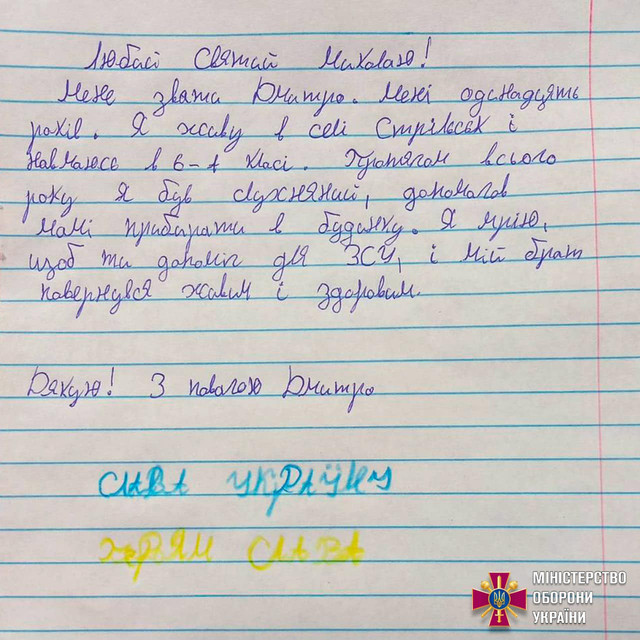 Любий Святий Миколаю!
Мене звати Дмитро. Мені одинадцять
років. Я живу в селі Стрільськ і
навчаюсь в 6-А класі. Протягом всього
року я був слухняний, допомагав
мамі прибирати в будинку. Я мрію,
щоб ти допоміг для ЗСУ, і мій брат
повернувся живим і здоровим.
Дякую! З повагою Дмитро
СЛАВА УКРАЇНУ
ХЕРЯМ СЛАВА
МІНІСТЕРСТВО
ОБОРОНИ
УКРАЇНИ